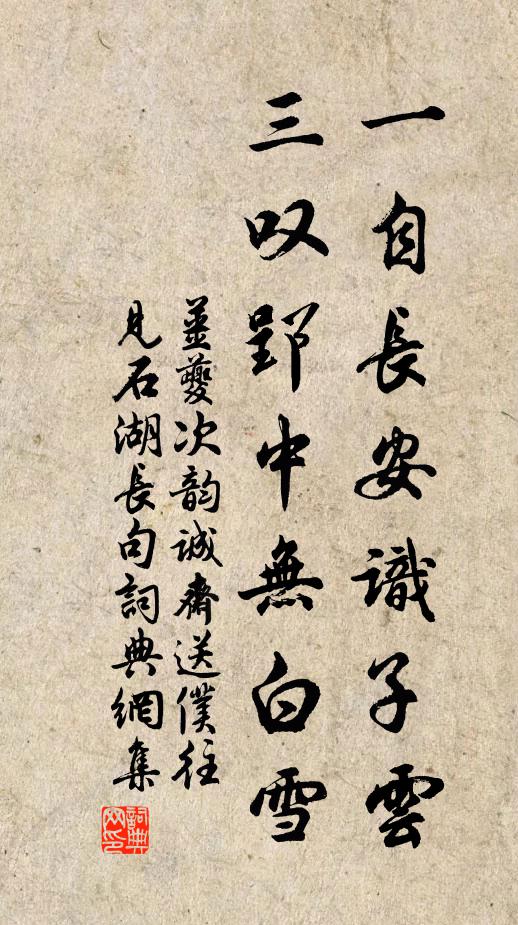 一自長安識子雲
三叹郢中無白雪
姜夔次韵誠齋送僕往
見石湖長句詞典網集
詞典網印